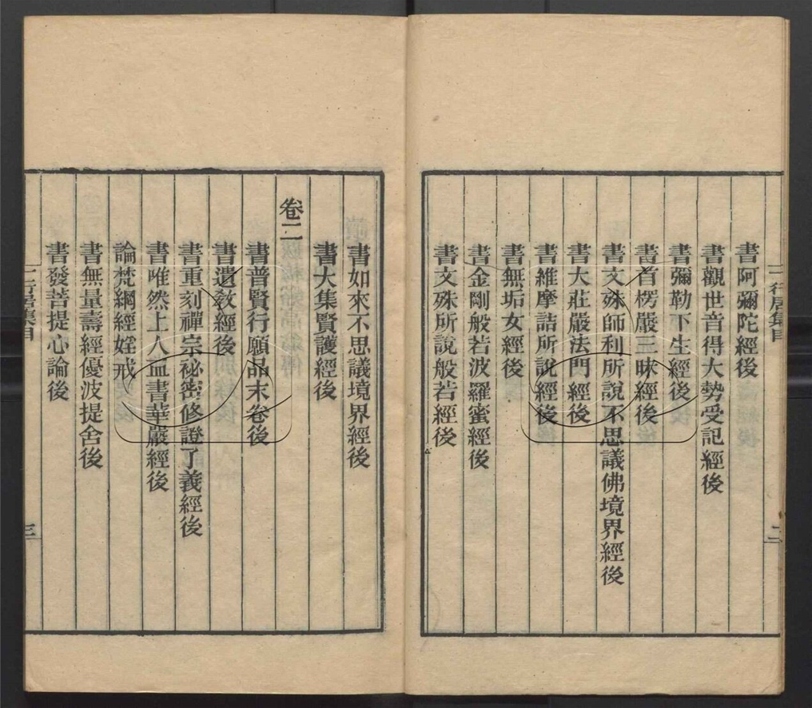 一行居集目
二
書阿彌陀經後
書觀世音得大勢受記經後
書彌勒下生經後
書首楞嚴三昧經後
書文殊師利所說不思議佛境界經後
書大莊嚴法門經後
書維摩詰所說經後
書無垢女經後
書金剛般若波羅蜜經後
書文殊所說般若經後
書如來不思議境界經後
書大集賢護經後
卷二
書普賢行願品末卷後
書遺敎經後
書重刻禪宗祕密修證了義經後
書唯然上人血書華嚴經後
論梵網經婬戒
書無量壽經優波提舍後
書發菩提心論後
一行居集目
三